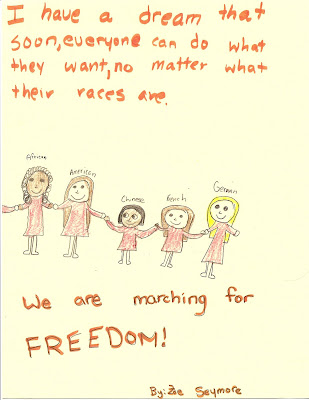 I have a dream that
soon, everyone can do what
they want, no matter what
their races are.
African
American
Chinese
French
German
We are marching for
FREEDOM!
By: Zoe Seymore